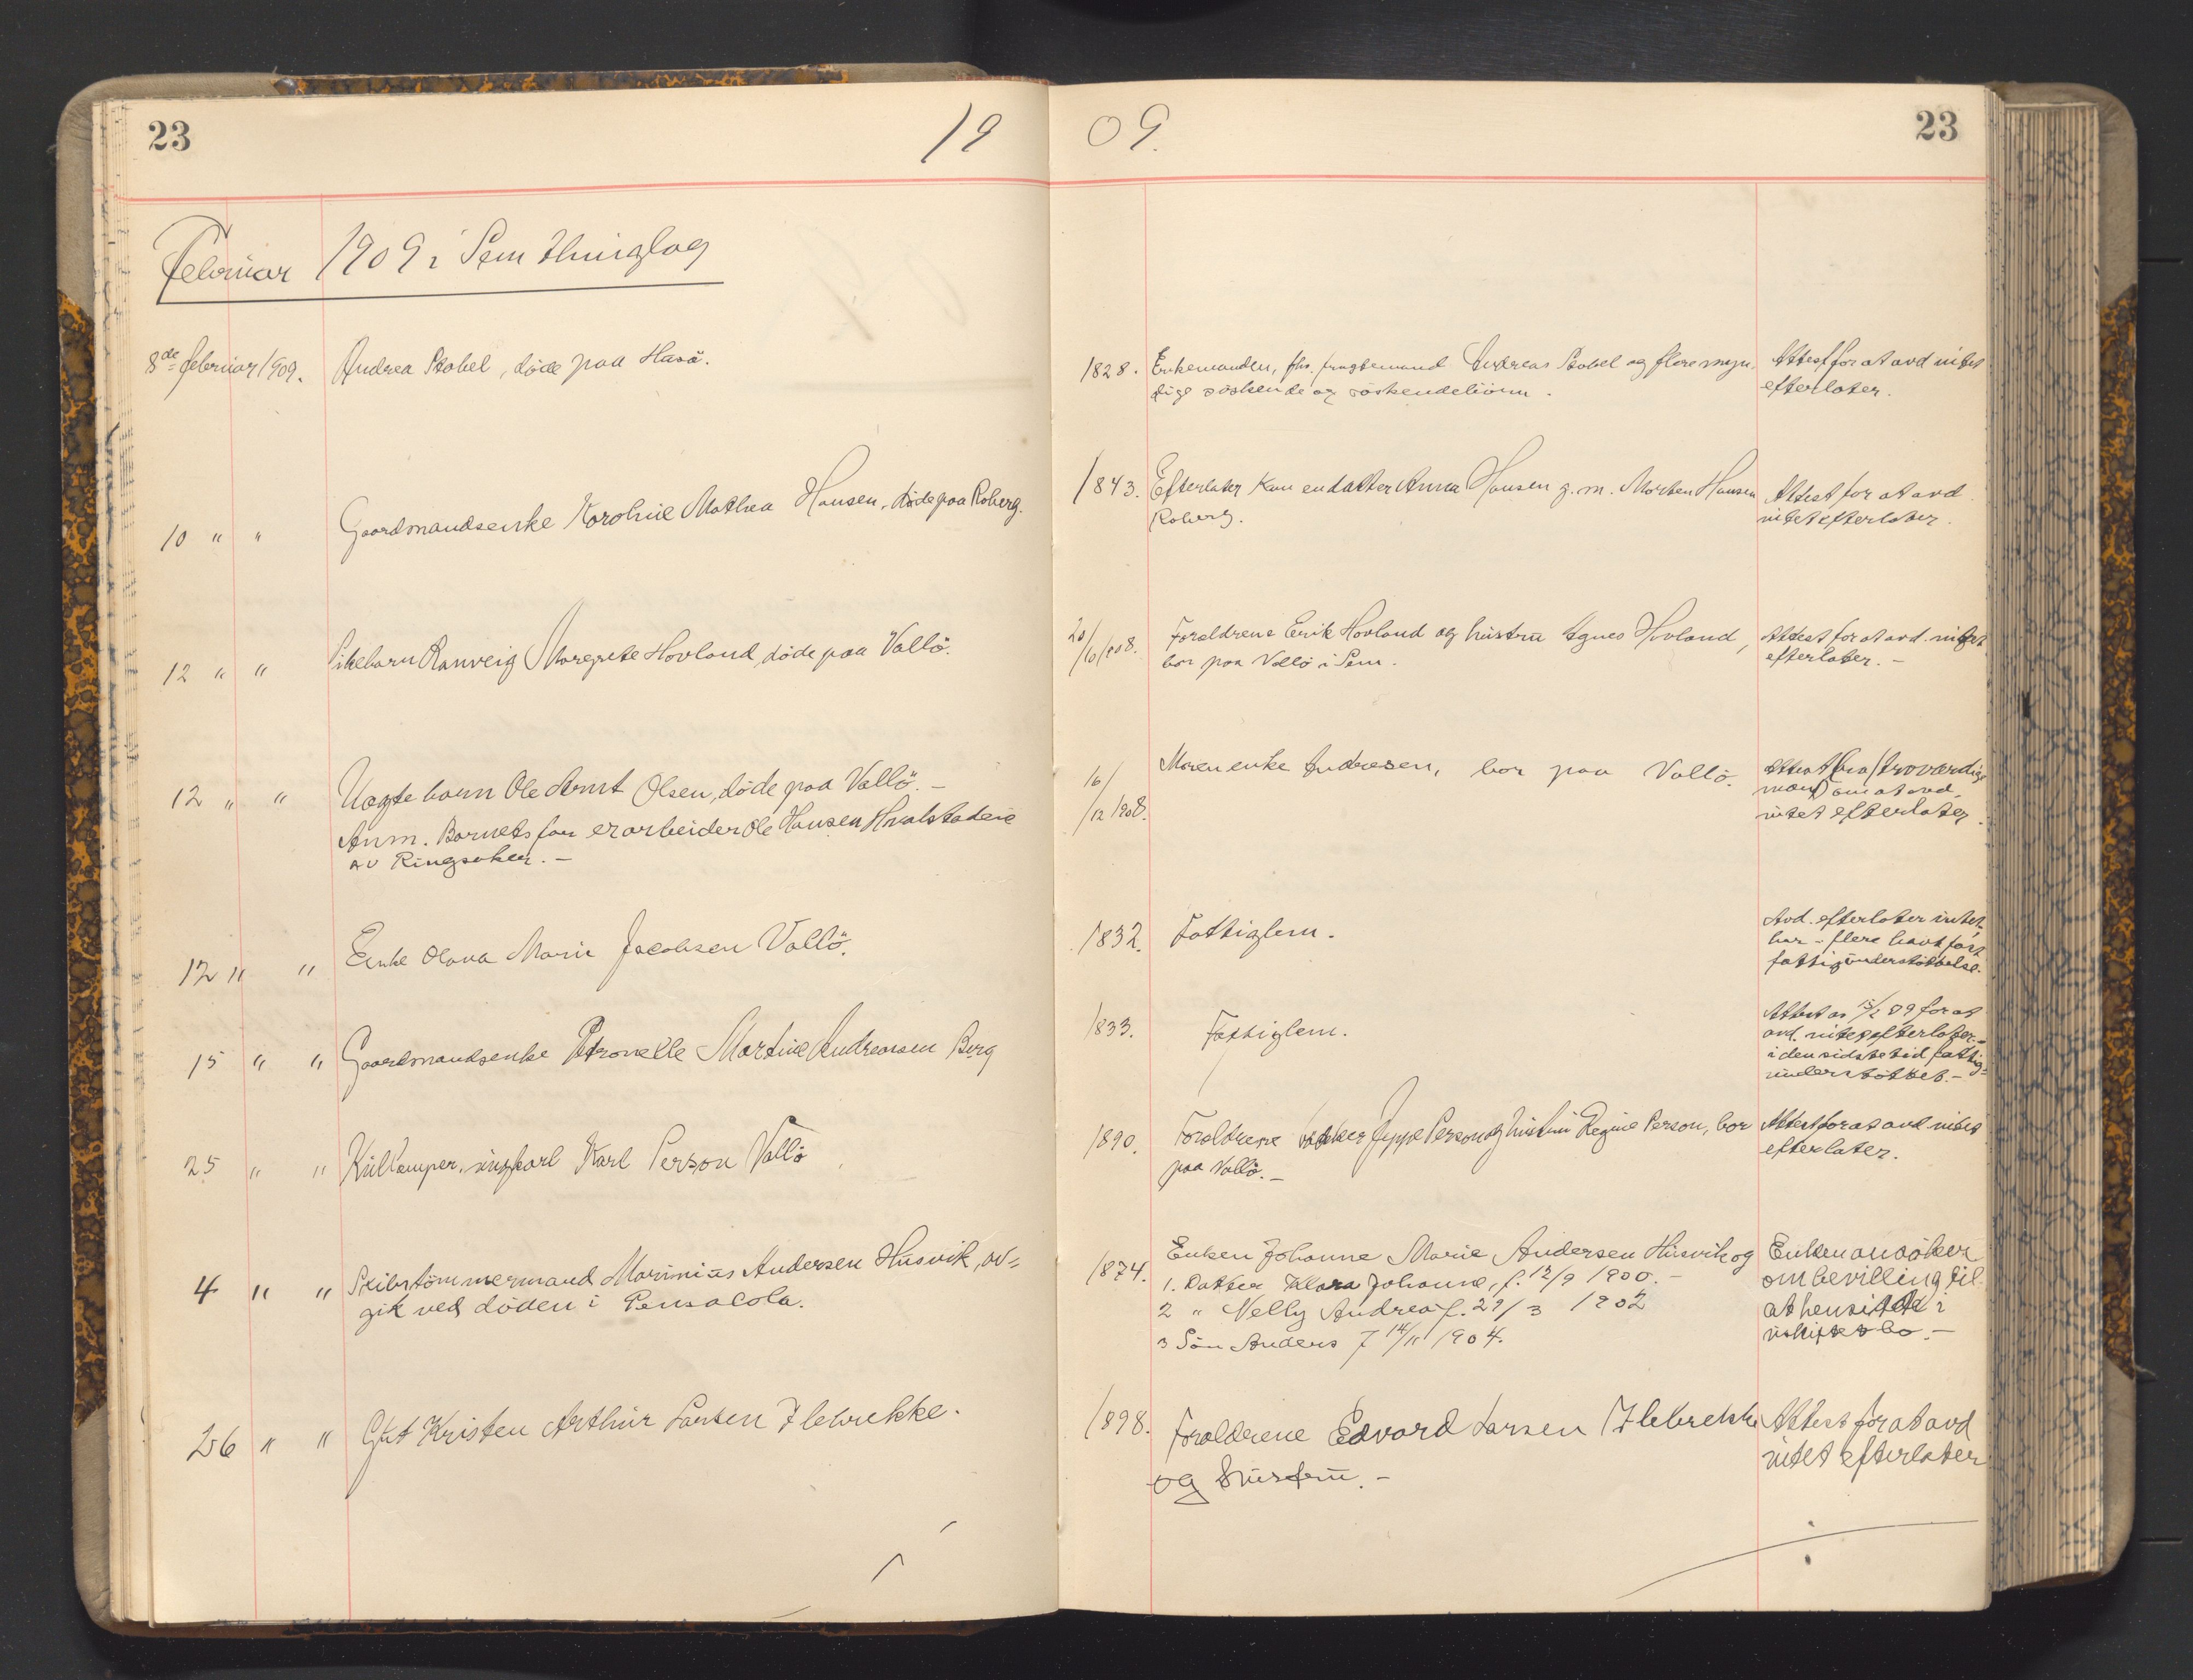 23
19
09.
23
Februar 1909 i Sem thinglag
8de februar 1909.
Andrea Stabel, døde paa Hasö.
1828.
Enkemanden, fhv. fragtemand Andreas Stabel og flere myn-
dige søskende og söskendebörn.
Attest for at avd intet
efterlater.
10 " "
Gaardmandsenke Karoline Mathea Hansen, döde paa Roberg.
1843.
Efterlater kun en datter Anna Hansen g. m. Morten Hansen
Roberg.
Attest for at avd
intet efterlater.
12 " "
Pikebarn Ranveig Margrete Hovland, döde paa Vallö.
20/10 1908.
Foraldrene Erik Hovland og hustru Agnes Hovland,
bor paa Vallö i Sem.
Attest for at avd. intet
efterlater. -
12 " "
Uagte barn Ole Arnt Olsen, döde paa Vallö. -
Anm. Barnets far er arbeider Ole Hansen
av Ringsaker. -
16/12 1908.
Maren enke Andresen, bor paa Vallö.
Attest (fra troværdige
mænd) om at avd.
intet efterlater.
12 " "
Enke Olava Marie Jacobsen Vallö.
1832.
Fattiglem.
Avd. efterlater intet,
har i flere
fattigunderstöttelse.
15 " "
Gaardmandsenke Petronelle Martine Andreasen Berg
1833.
Fattiglem.
Attest av 15/2 09 for at
avd. intet efterlater, -
i den sidste tid fattig-
understöttet. -
25 " "
Kullemper, ungkarl Karl Person Vallö
1890.
Foraldrene Jeppe Person og hustru Regine Person, bor
paa Vallö. -
Attest for at avd intet
efterlater.
4 " "
Skibstömmermand Marinius Andersen Husvik, av-
gik ved döden i Pensacola.
1874.
Enken Johanne Marie Andersen Husvik og
1. Datter Klara Johanne, f. 12/9 1900. -
2 " Nelly Andrea f. 29/3 1902
3 Sön Anders f 14/11 1904.
Enken ansöker
om bevilling til
at hensitte i
uskiftet bo. -
26 " "
Gut Kristen Arthur Larsen Ilebrekke.
1898.
Foraldrene Edvard Larsen Ilebrekke
og hustru. -
Attest for at avd
intet efterlater